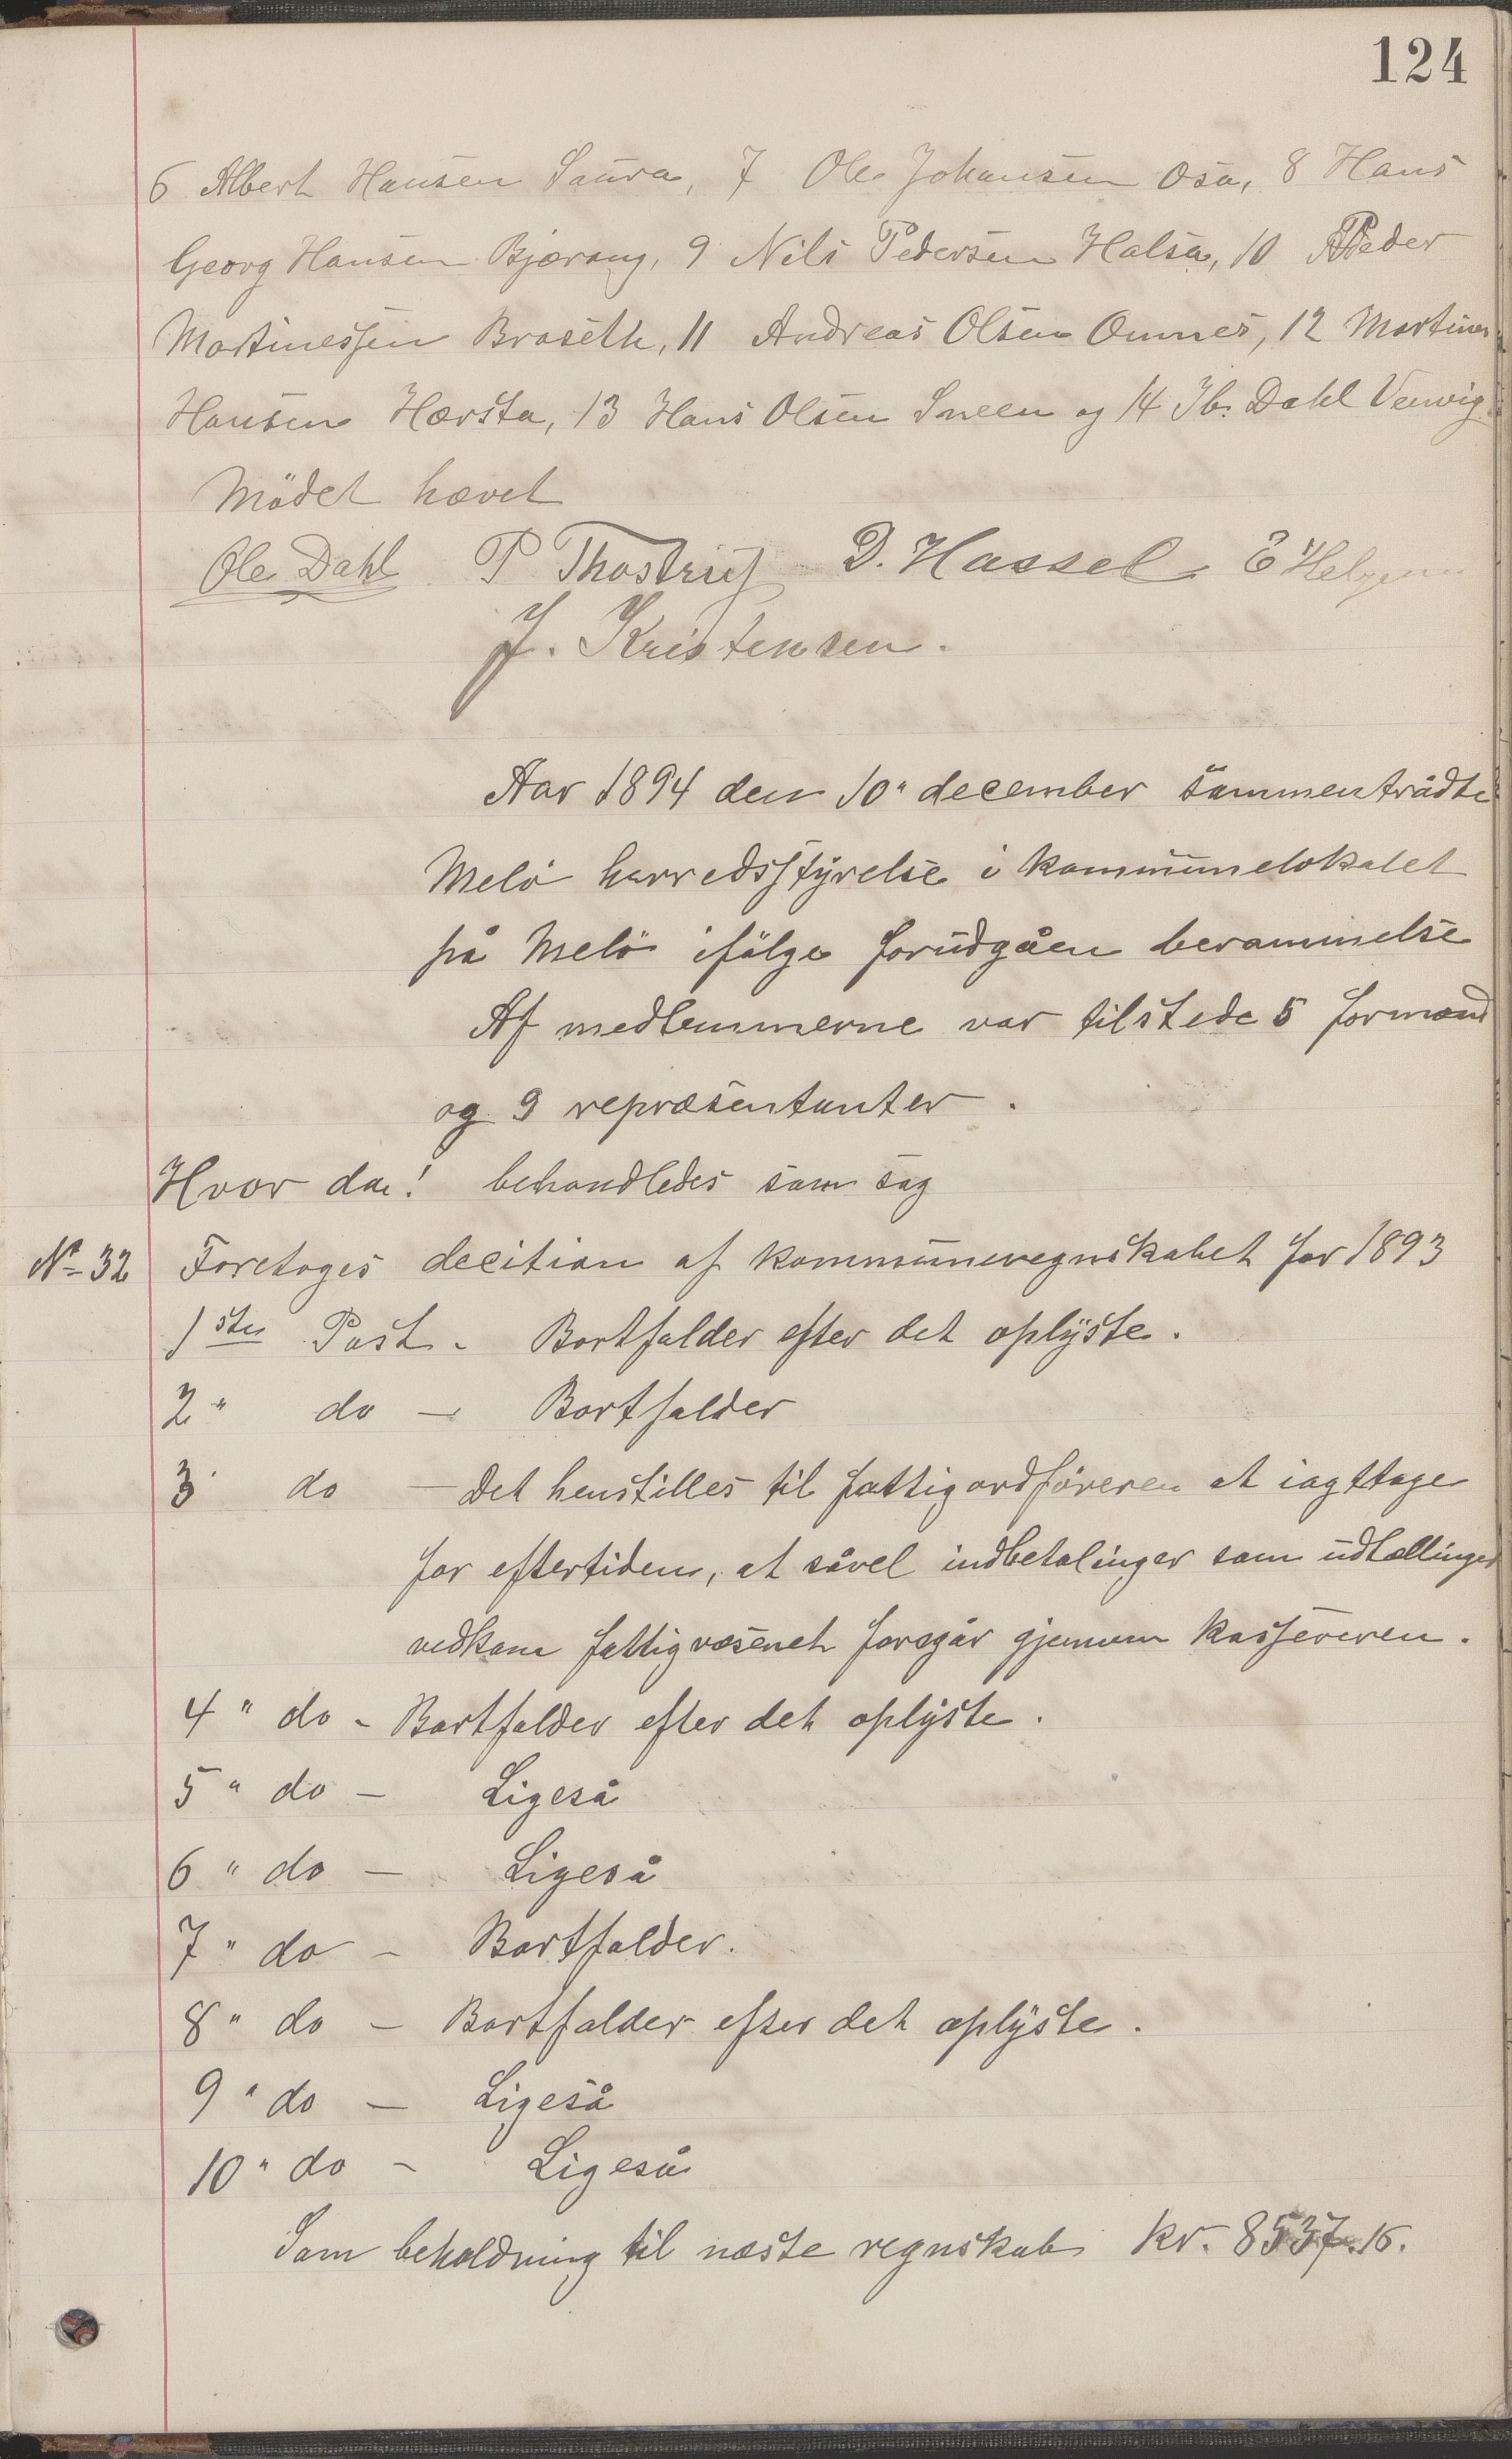 124
6 Albert Hansen Saura, 7 Ole Johansen Osa, 8 Hans
Georg Hansen Bjærang, 9 Nils Pedersen Halsa, 10 Peder
Martinessen Braseth, 11 Andreas Olsen Omnes, 12 Martines
Hansen Hærsta, 13 Hans Olsen Sneen og 14 Ib. Dahl Venvig
Mödet hævet
Ole Dahl P Thostrup D. Hassel E Helgesen
J. Kristensen.
Aar 1894 den 10" december sammentrådte
Melö herredsstyrelse i kommunelokalet
på Melö ifölge forudgåen berammelse
Af medlemmerne var tilstede 5 formænd
og 9 repræsentanter.
Hvor da! behandledes som sag
No 32 Foretoges decition af kommuneregnskabet for 1893
1ste Post - Bortfalder efter det oplyste.
2" do - Bortfalder
3" do - Det henstilles til fattigordföreren at iagttage
for eftertiden, at såvel indbetalinger som udtællinger
vedkom fattigvæsenet foregår gjennem kassereren.
4" do - Bortfalder efter det oplyste.
5" do - Ligeså
6" do - Ligeså
7" do - Bortfalder.
8" do - Bortfalder efter det oplyste.
9" do - Ligeså
10" do - Ligeså
Som beholdning til næste regnskab kr. 8537.16.